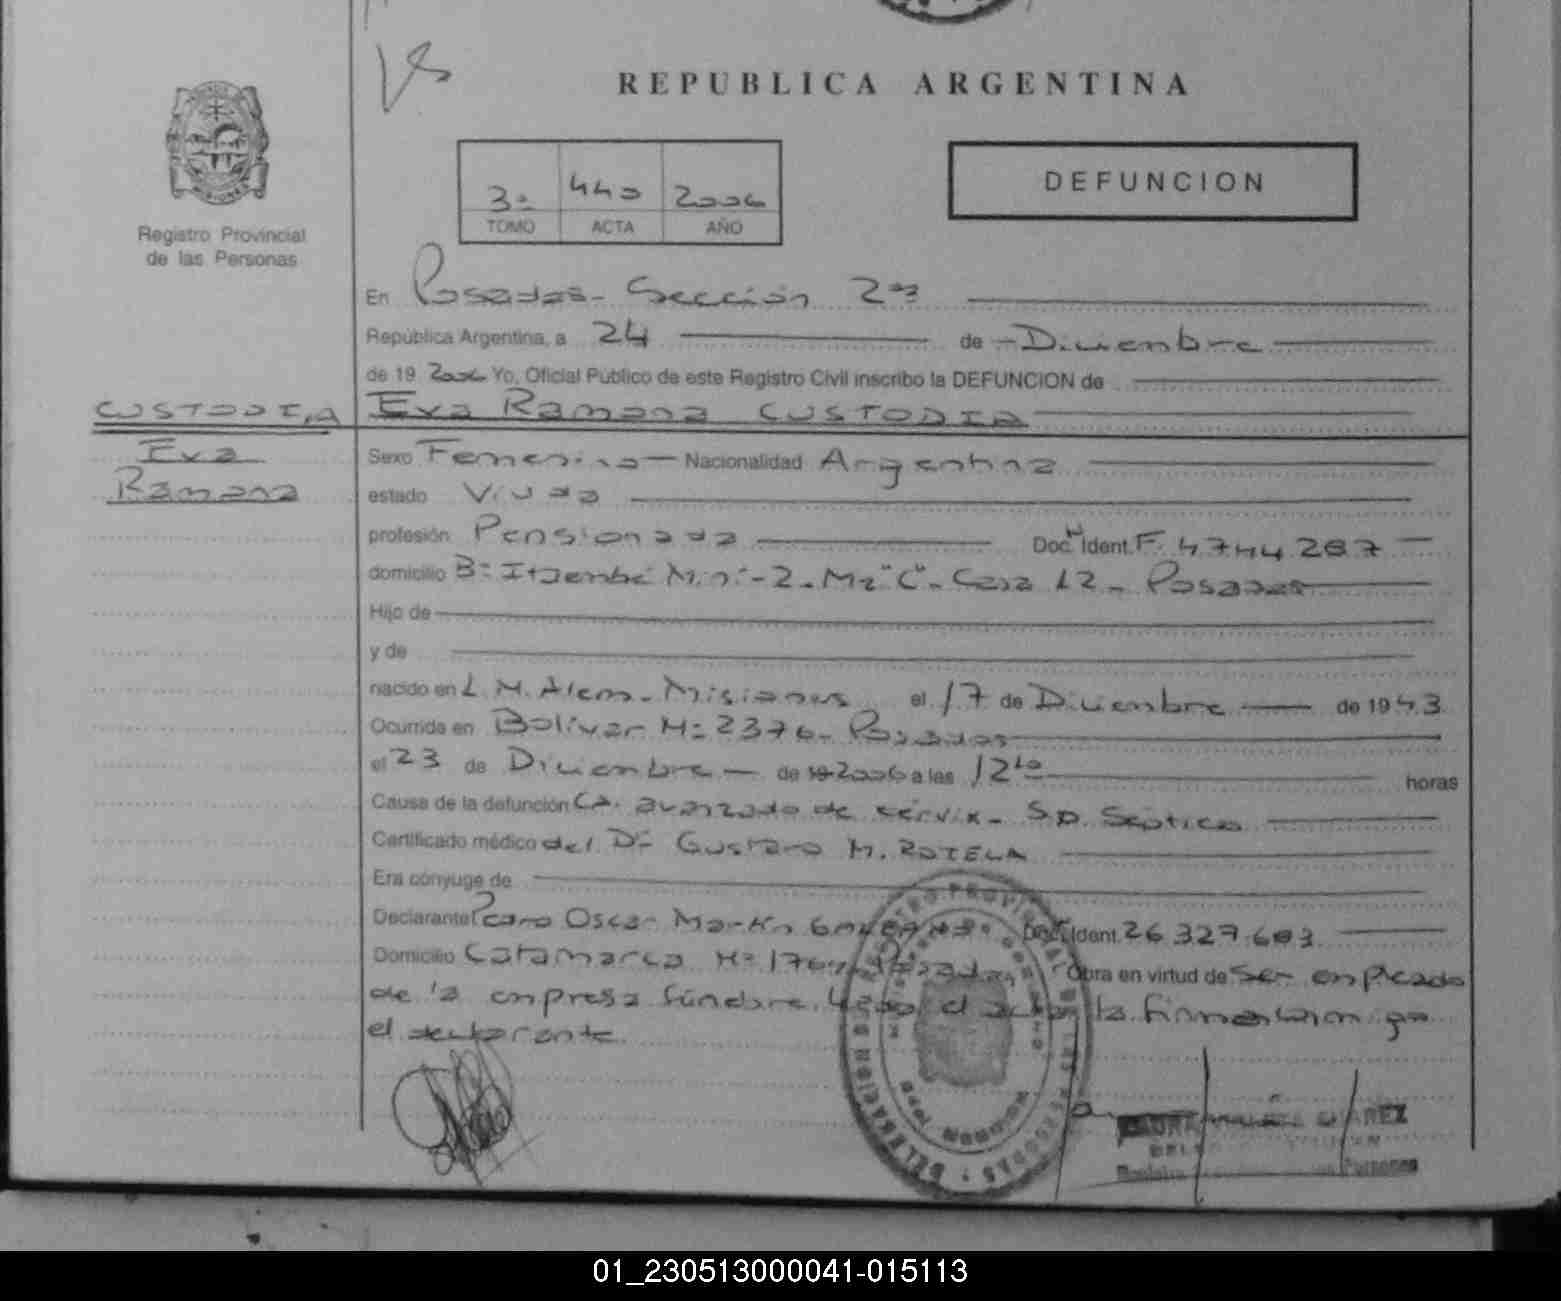 REPUBLICA ARGENTINA
Registro Provincial
de las Personas
3º 440 2006
TOMO ACTA AÑO
DEFUNCION
En Posadas - Sección 2da
República Argentina, a 24 de Diciembre
de 19 2006 Yo, Oficial Público de este Registro Civil inscribo la DEFUNCION de
CUSTODIA Eva Ramona CUSTODIA
Eva
Ramona
Sexo Femenino Nacionalidad Argentina
estado Viuda
profesión Pensionada Doc. Ident. F. 4744287
domicilio Bº Itaembé Miní - 2 - Mz "C" - Casa 12 - Posadas
Hijo de
y de
nacido en L. N. Alem - Misiones el 17 de Diciembre de 1943
Ocurrida en Bolívar Nº 2376 - Posadas
el 23 de Diciembre de 19 2006 a las 12 horas
Causa de la defunción CA. avanzado de sérvix - Séptico
Certificado médico del Dr Gustavo M. ROTELA
Era cónyuge de
Declarante Pedro Oscar Doc. Ident. 26.327.603
Domicilio Catamarca Nº Posadas Obra en virtud de Ser empleado
de la empresa fúnebre. Leído el acta la firman
el declarante
SUAREZ
01_230513000041-015113